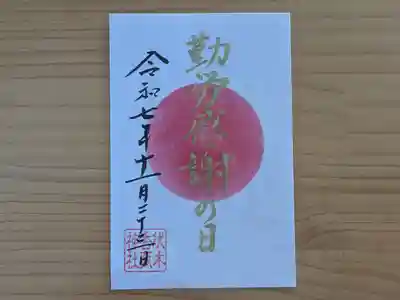 勤労感謝の日
令和七年十一月二十三日
伏木
香取
神社